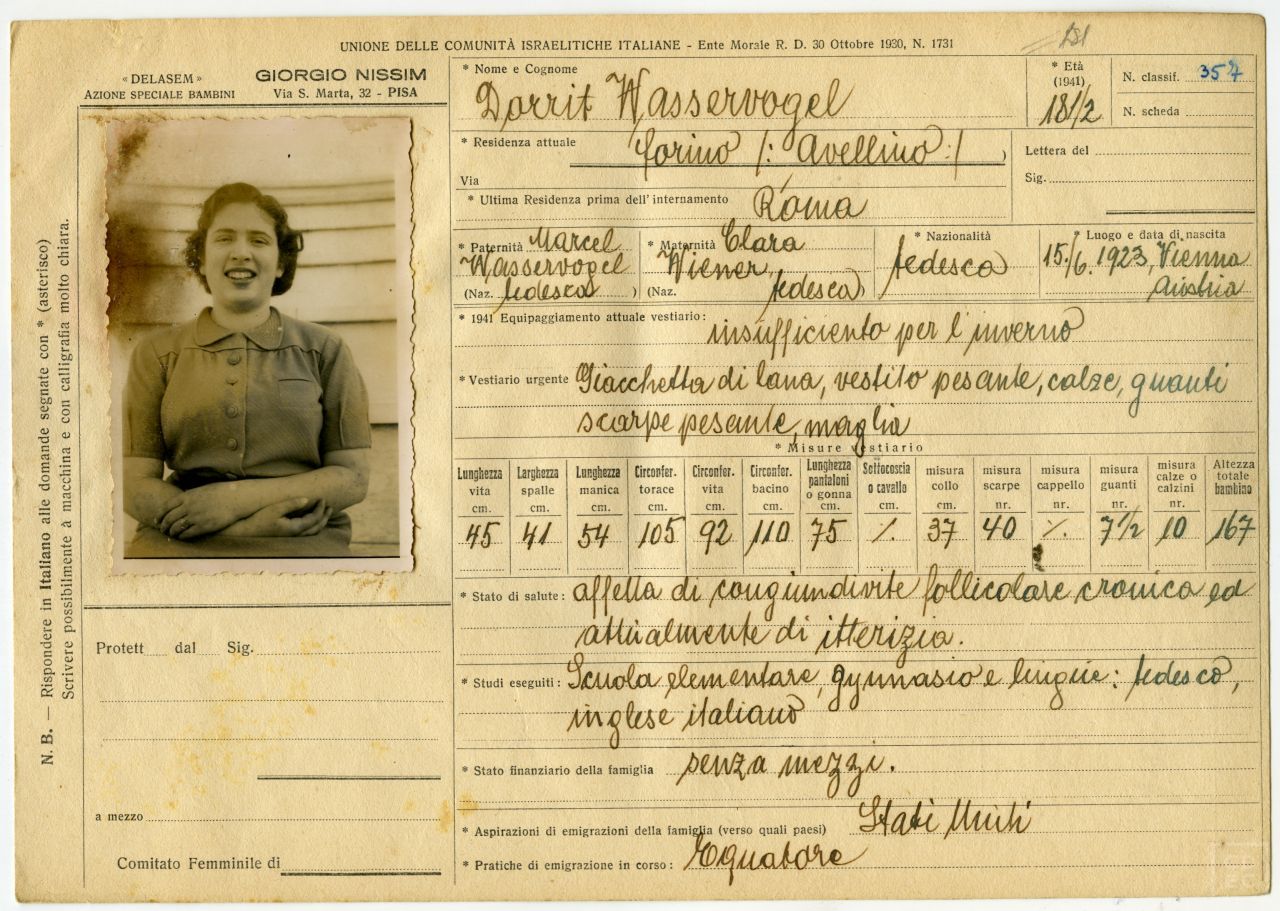 UNIONE DELLE COMUNITÀ ISRAELITICHE ITALIANE - Ente Morale R. D. 30 Ottobre 1930, N. 1731
« DELASEM »
AZIONE SPECIALE BAMBINI
GIORGIO NISSIM
Via S. Marta, 32 - PISA
* Nome e Cognome
Dorrit Wasservogel
* Età
(1941)
18 1/2
N. classif. 357
N. scheda
* Residenza attuale Torino /: Avellino :/ )
Via
Lettera del
Sig.
* Ultima Residenza prima dell'internamento Roma
* Paternità Marcel
Wasservogel
(Naz. tedesca )
* Maternità Clara
Wiener,
(Naz. tedesca)
* Nazionalità
tedesca
* Luogo e data di nascita
15./6. 1923, Vienna
Austria
* 1941 Equipaggiamento attuale vestiario: insufficiento per l'inverno
* Vestiario urgente Giacchetta di lana, vestito pesante, calze, guanti
scarpe pesante, maglia
* Misure vestiario
Lunghezza vita cm. 45
Larghezza spalle cm. 41
Lunghezza manica cm. 54
Circonfer. torace cm. 105
Circonfer. vita cm. 92
Circonfer. bacino cm. 110
Lunghezza pantaloni o gonna cm. 75
Sottocoscia o cavallo cm. %.
misura collo cm. 37
misura scarpe nr. 40
misura cappello nr. %.
misura guanti nr. 7 1/2
misura calze o calzini nr. 10
Altezza totale bambino 167
* Stato di salute: affetta di congiundivite follicolare cronica ed
attualmente di itterizia.
* Studi eseguiti: Scuola elementare, gymnasio e lingue: tedesco,
inglese italiano
* Stato finanziario della famiglia senza mezzi.
* Aspirazioni di emigrazioni della famiglia (verso quali paesi) Stati Uniti
* Pratiche di emigrazione in corso: Equatore
Protett dal Sig.
a mezzo
Comitato Femminile di
N. B. — Rispondere in Italiano alle domande segnate con * (asterisco)
Scrivere possibilmente à macchina e con calligrafia molto chiara.